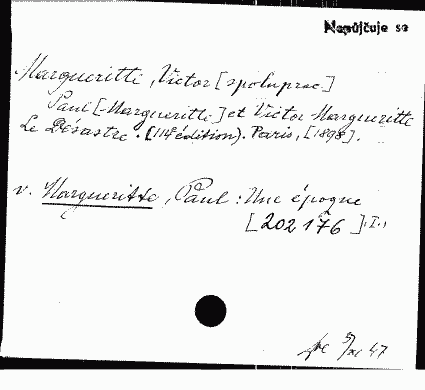 Nepůjčuje se
Margueritte, Victor [spoluprac.]
Paul [-Margueritte] et Victor Margueritte
Le Désastre. (114e édition). Paris, [1898].
v. Margueritte, Paul : Une époque
[202176], I.,
5/XI 47